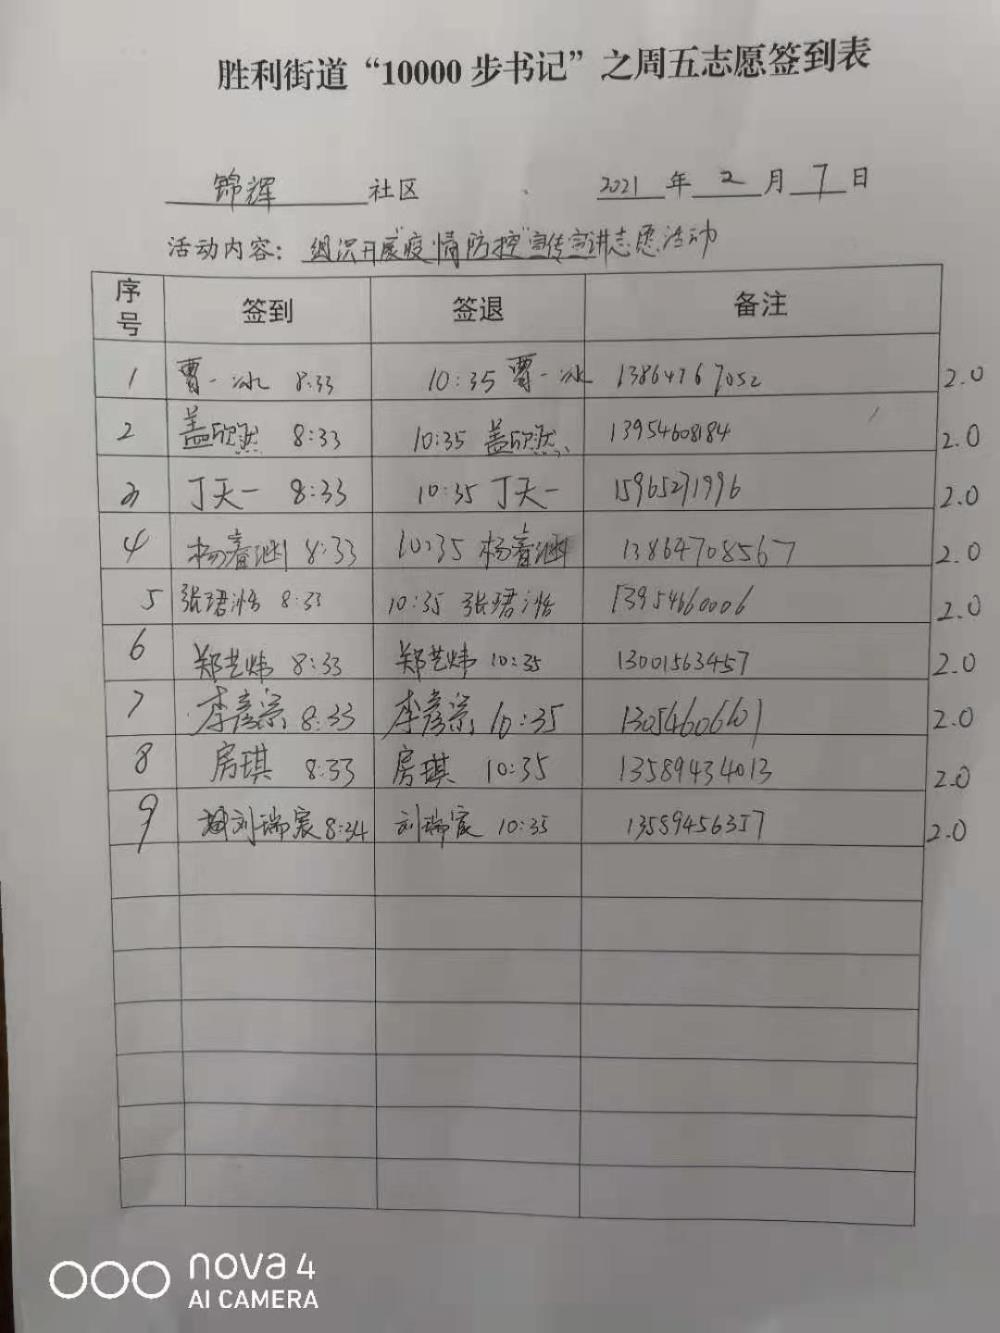 胜利街道“10000步书记”之周五志愿签到表
锦辉 社区 2021 年 2 月 7 日
活动内容: 组织开展“疫情防控”宣传宣讲志愿活动
序号 签到 签退 备注
1 贾一冰 8:33 10:35 贾一冰 13864767052 2.0
2 盖欣然 8:33 10:35 盖欣然 13954608184 2.0
3 丁天一 8:33 10:35 丁天一 15965271996 2.0
4 杨睿涵 8:33 10:35 杨睿涵 13864708567 2.0
5 张珺浩 8:33 10:35 张珺浩 13954660006 2.0
6 郑艺炜 8:33 郑艺炜 10:35 13001563457 2.0
7 李彦宗 8:33 李彦宗 10:35 13054606601 2.0
8 房琪 8:33 房琪 10:35 13589434013 2.0
9 刘瑞宸 8:34 刘瑞宸 10:35 13589456357 2.0
nova 4
AI CAMERA